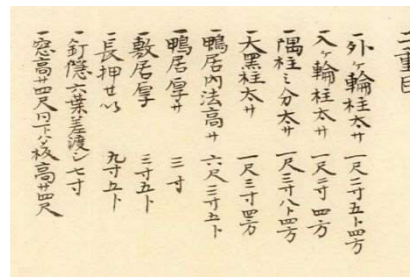 二重目
一外ヶ輪柱太サ 一尺二寸五卜四方
一入ヶ輪柱太サ 一尺二寸四方
一隅柱ミ分太サ 一尺三寸八卜四方
一大黒柱太サ 一尺三寸四方
一鴨居内法高サ 六尺三寸五卜
一鴨居厚サ 三寸
一敷居厚 三寸五卜
一長押せい 九寸五卜
一釘隠六葉差渡シ七寸
一窓高サ四尺同下ハ板高サ四尺